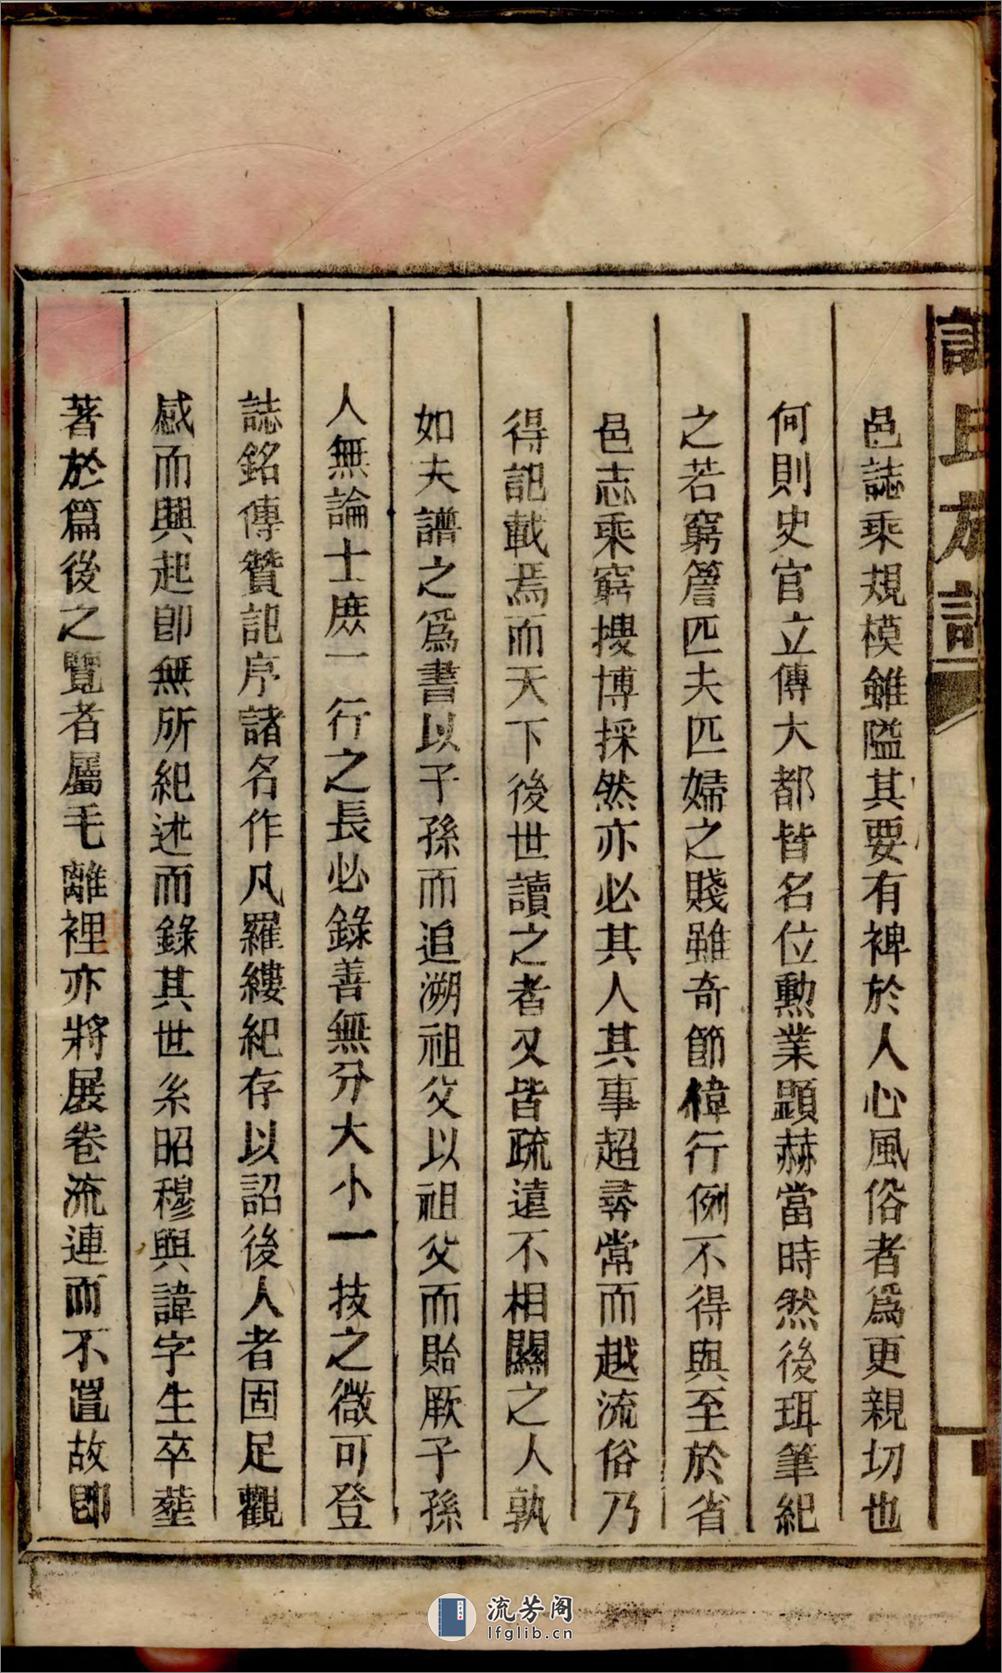 氏族譜
邑誌乘規模雖隘其要有裨於人心風俗者爲更親切也
何則史官立傳大都皆名位勳業顯赫當時然後珥筆紀
之若窮簷匹夫匹婦之賤雖奇節偉行例不得與至於省
邑志乘窮搜博採然亦必其人其事超尋常而越流俗乃
得記載焉而天下後世讀之者又皆疏遠不相關之人孰
如夫譜之爲書以子孫而追溯祖父以祖父而貽厥子孫
人無論士庶一行之長必錄善無分大小一技之微可登
誌銘傳贊記序諸名作凡羅縷紀存以詔後人者固足觀
感而興起卽無所紀述而錄其世系昭穆與諱字生卒塟
著於篇後之覽者屬毛離裡亦將展卷流連而不置故卽
流芳阁
lfglib.cn